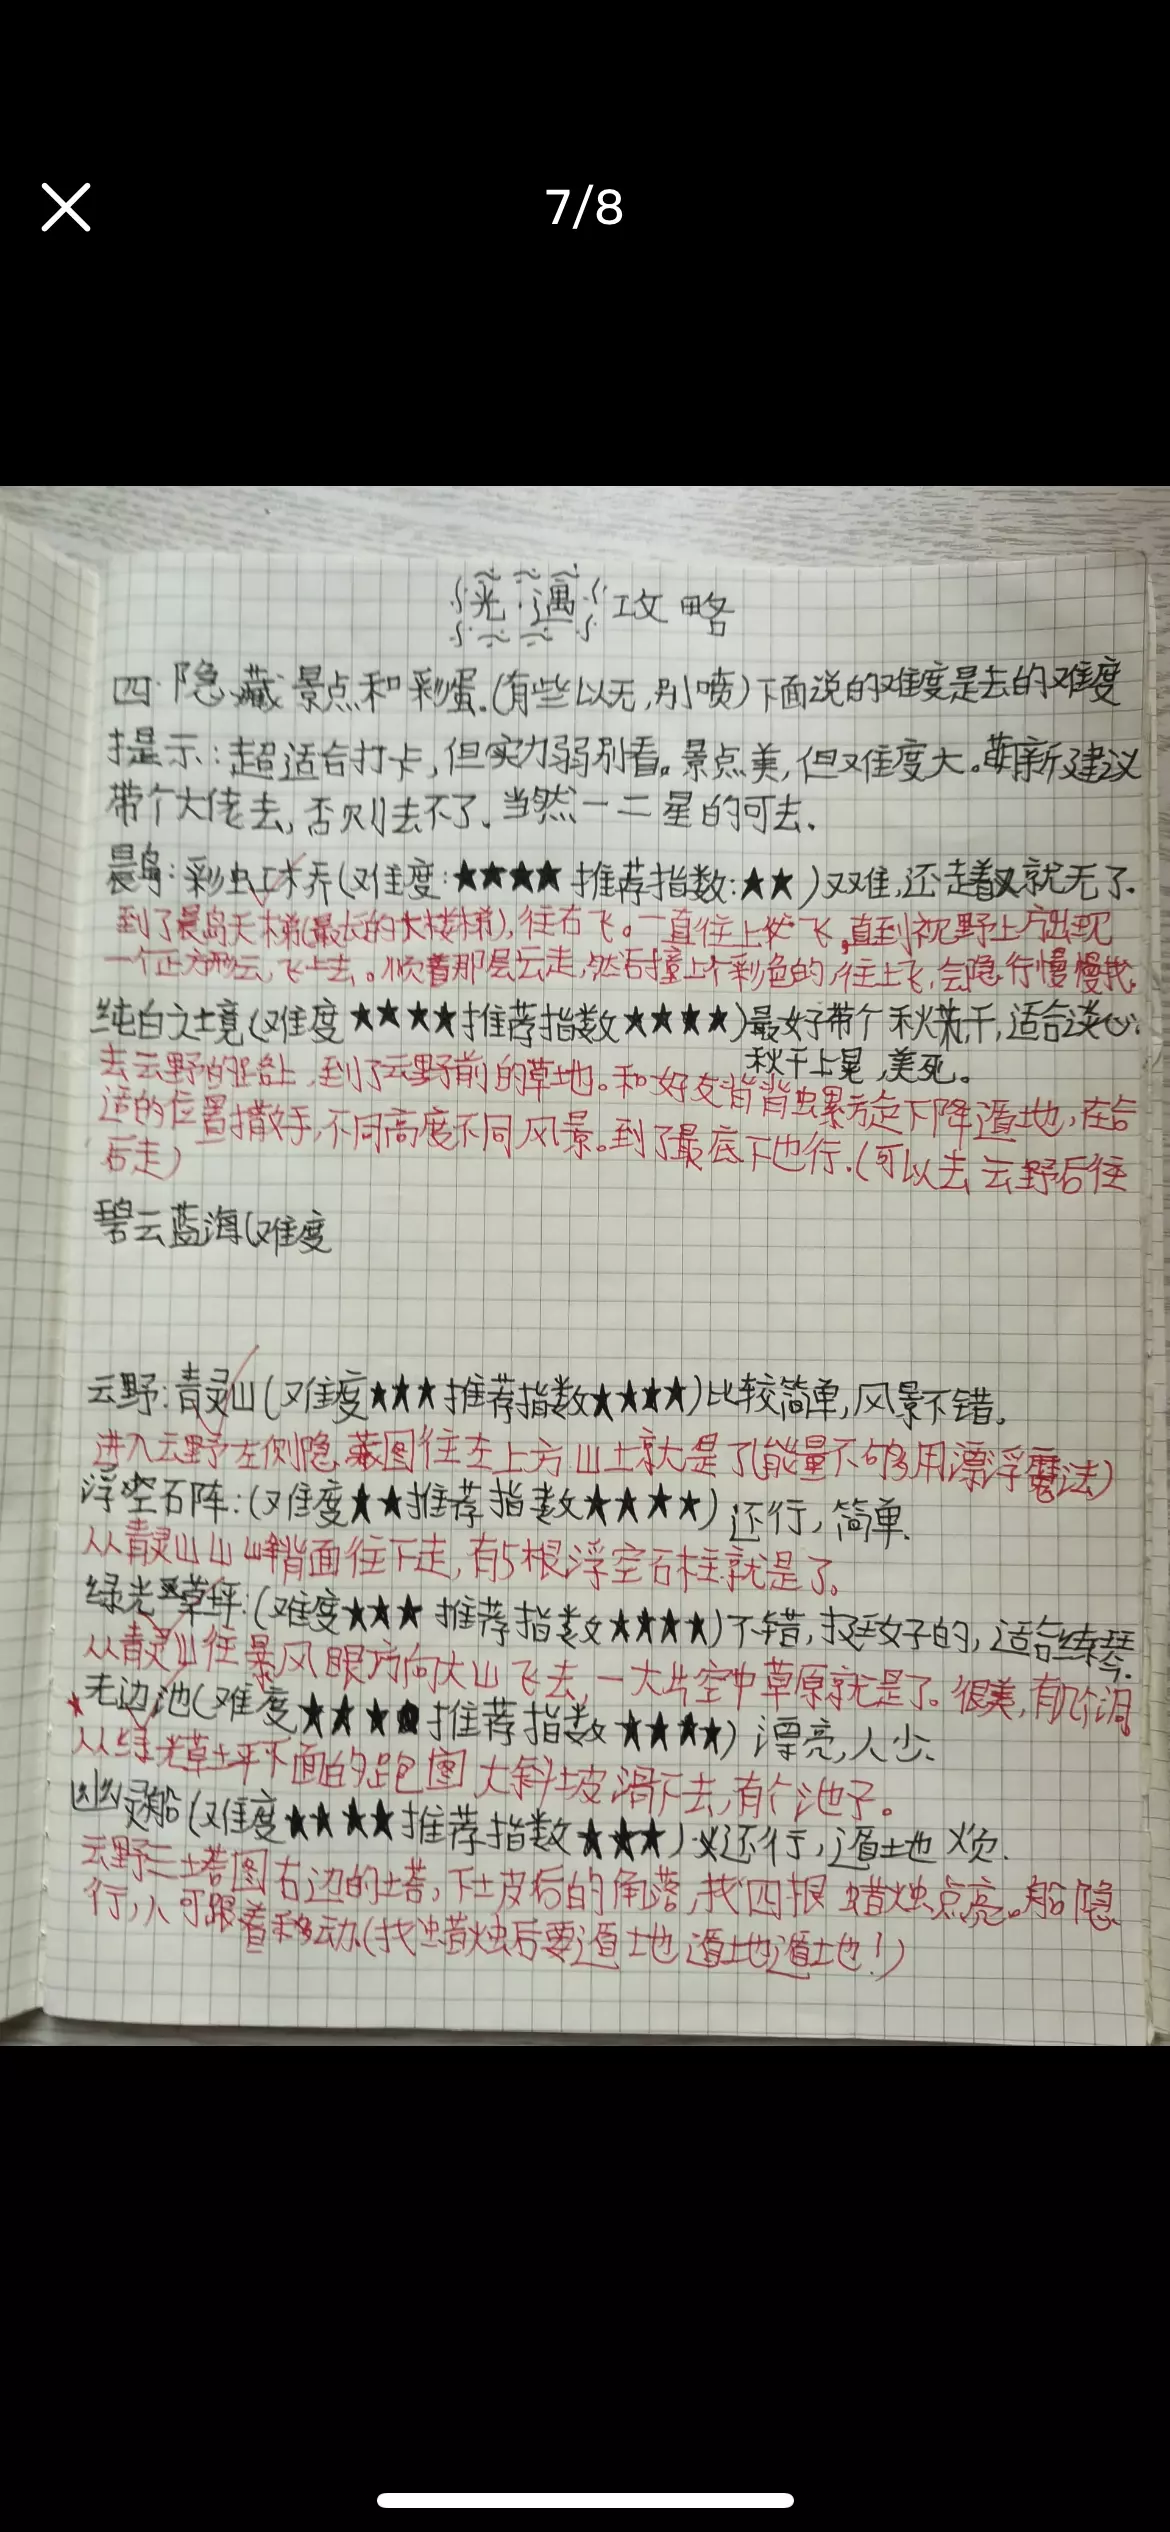 7/8
光·遇 攻略
四·隐藏景点和彩蛋.(有些以无,别喷)下面说的难度是去的难度
提示:超适合打卡,但实力弱别看。景点美,但难度大。萌新建议
带个大佬去,否则去不了.当然一二星的可去.
晨岛:彩虹桥(难度:★★★★推荐指数:★★)双难,还走着就无了.
到了晨岛天梯(最长的大楼梯),往右飞。一直往上飞,直到视野上方出现
一个正方形云,飞上去。顺着那层云走,然后撞上个彩色的,往上飞,会隐行慢慢找.
纯白之境(难度★★★★推荐指数★★★★)最好带个秋千,适合谈心.
秋千上晃,美死。
去云野的路上,到了云野前的草地。和好友背背虫累方定下降遁地,在合
适的位置撒手,不同高度不同风景。到了最底下也行.(可以去云野后往
后走)
碧云蓝海(难度
云野:青灵山(难度★★★推荐指数★★★★)比较简单,风景不错。
进入云野左侧隐藏图往左上方山上就是了(能量不够用漂浮魔法)
浮空石阵:(难度★★推荐指数★★★★)还行,简单.
从青灵山山峰背面往下走,有5根浮空石柱就是了。
绿光草坪:(难度★★★推荐指数★★★★)不错,挺好的,适合练琴.
从青灵山往暴风眼方向大山飞去,一大片空中草原就是了。很美,有几个洞
无边池(难度★★★★推荐指数★★★★)漂亮,人少.
从绿光草坪下面的跑图大斜坡滑下去,有个池子。
幽灵船(难度★★★★推荐指数★★★)还行,遁地烦.
云野三塔图右边的塔,下坡后的角落,找四根蜡烛点亮。船隐
行,人可跟着移动.(找蜡烛后要遁地遁地遁地!)